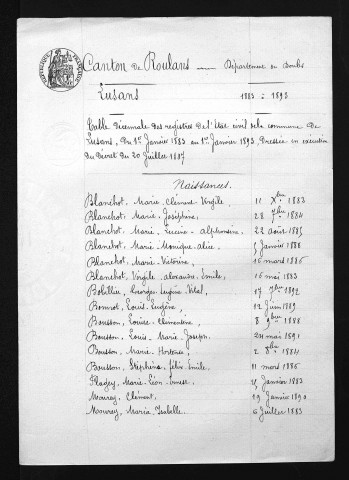 Canton de Roulans — Département du Doubs
Lusans 1883 à 1893
Table décennale des registres de l'Etat civil de la commune de
Lusans, du 1er Janvier 1883 au 1er Janvier 1893, Dressée en exécution
du Décret du 20 Juillet 1807
Naissances.
Blanchot, Marie Clément Virgile, 11 Xbre 1883
Blanchot, Marie Joséphine, 28 7bre 1884
Blanchot, Marie Lucine Alphonsine, 22 août 1885
Blanchot, Marie Monique Alice, 5 Janvier 1888
Blanchot, Marie Victorine, 16 mars 1886
Blanchot, Virgile Alexandre Emile, 16 mai 1883
Bobillier, Georges Eugène Vital, 17 7bre 1892
Bonnot, Louis Eugène, 12 Juin 1889
Bousson, Louise Clémentine, 8 9bre 1888
Bousson, Louis Marie Joseph, 24 mai 1891
Bousson, Marie Hortense, 2 8bre 1884
Bousson, Stéphanie Félix Emile, 11 mars 1886
Flagey, Marie Léon Ernest, 15 Janvier 1883
Mourey, Clément, 19 Janvier 1890
Mourey, Maria Isabelle, 6 Juillet 1883